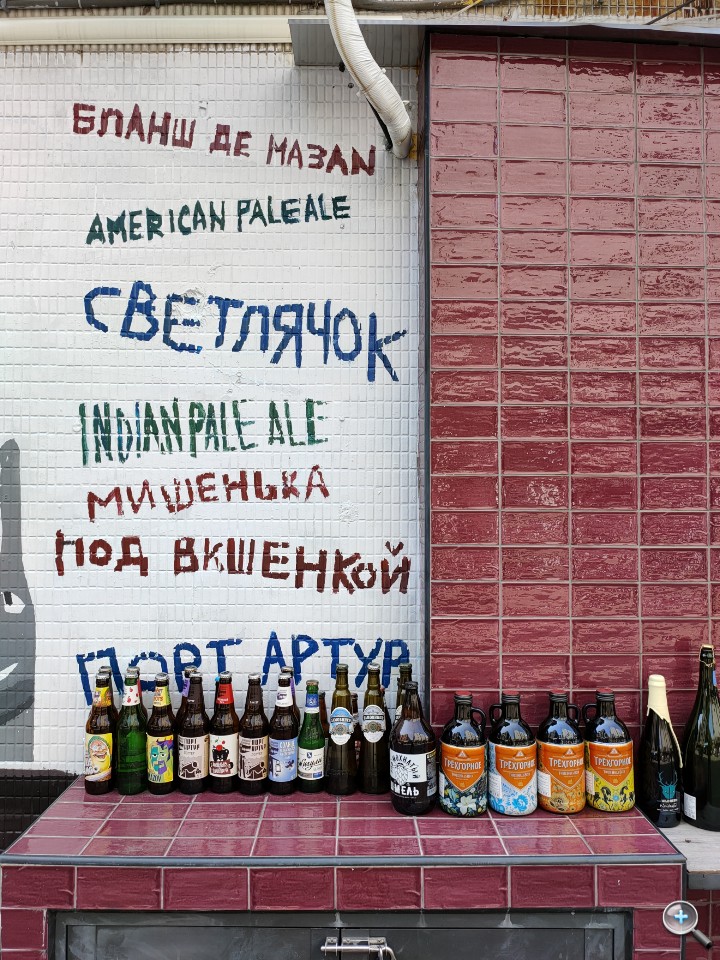 БЛАНШ ДЕ МАЗАЛ
AMERICAN PALE ALE
СВЕТЛЯЧОК
INDIAN PALE ALE
МИШЕНЬКА
ПОД ВКШЕНКОЙ
ПОРТ АРТУР
МОХНАТЫЙ
ШМЕЛЬ
ТРЁХГОРНОЕ
ТРЁХГОРНОЕ
ТРЁХГОРНОЕ
ТРЁХГОРНОЕ